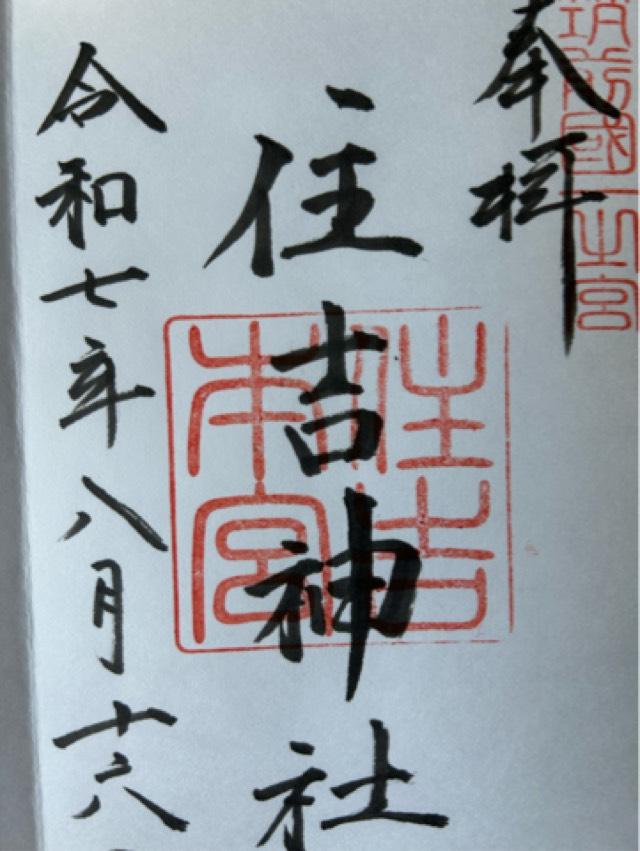 筑前國一之宮
奉拝
住吉神社
住吉
本宮
令和七年八月十六